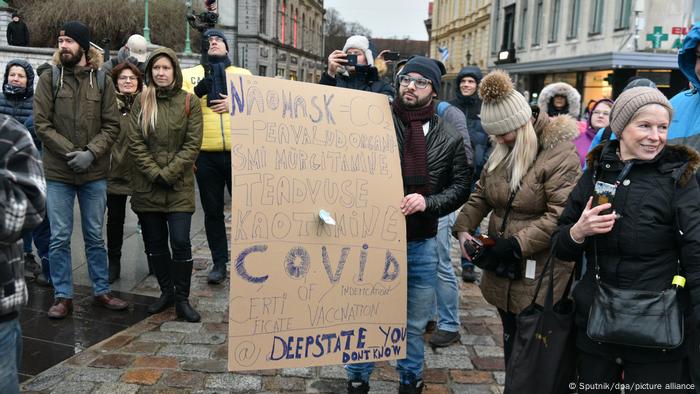 NÄOMASK = CO2
= PEAVALUD ORGANI-
SMI MÜRGITAMINE,
TEADVUSE
KAOTAMINE
COVID
CERTI OF INDEFICATION
FICATE VACCNATION
@ DEEPSTATE YOU
DONT KNOW
© Sputnik/dpa/picture alliance